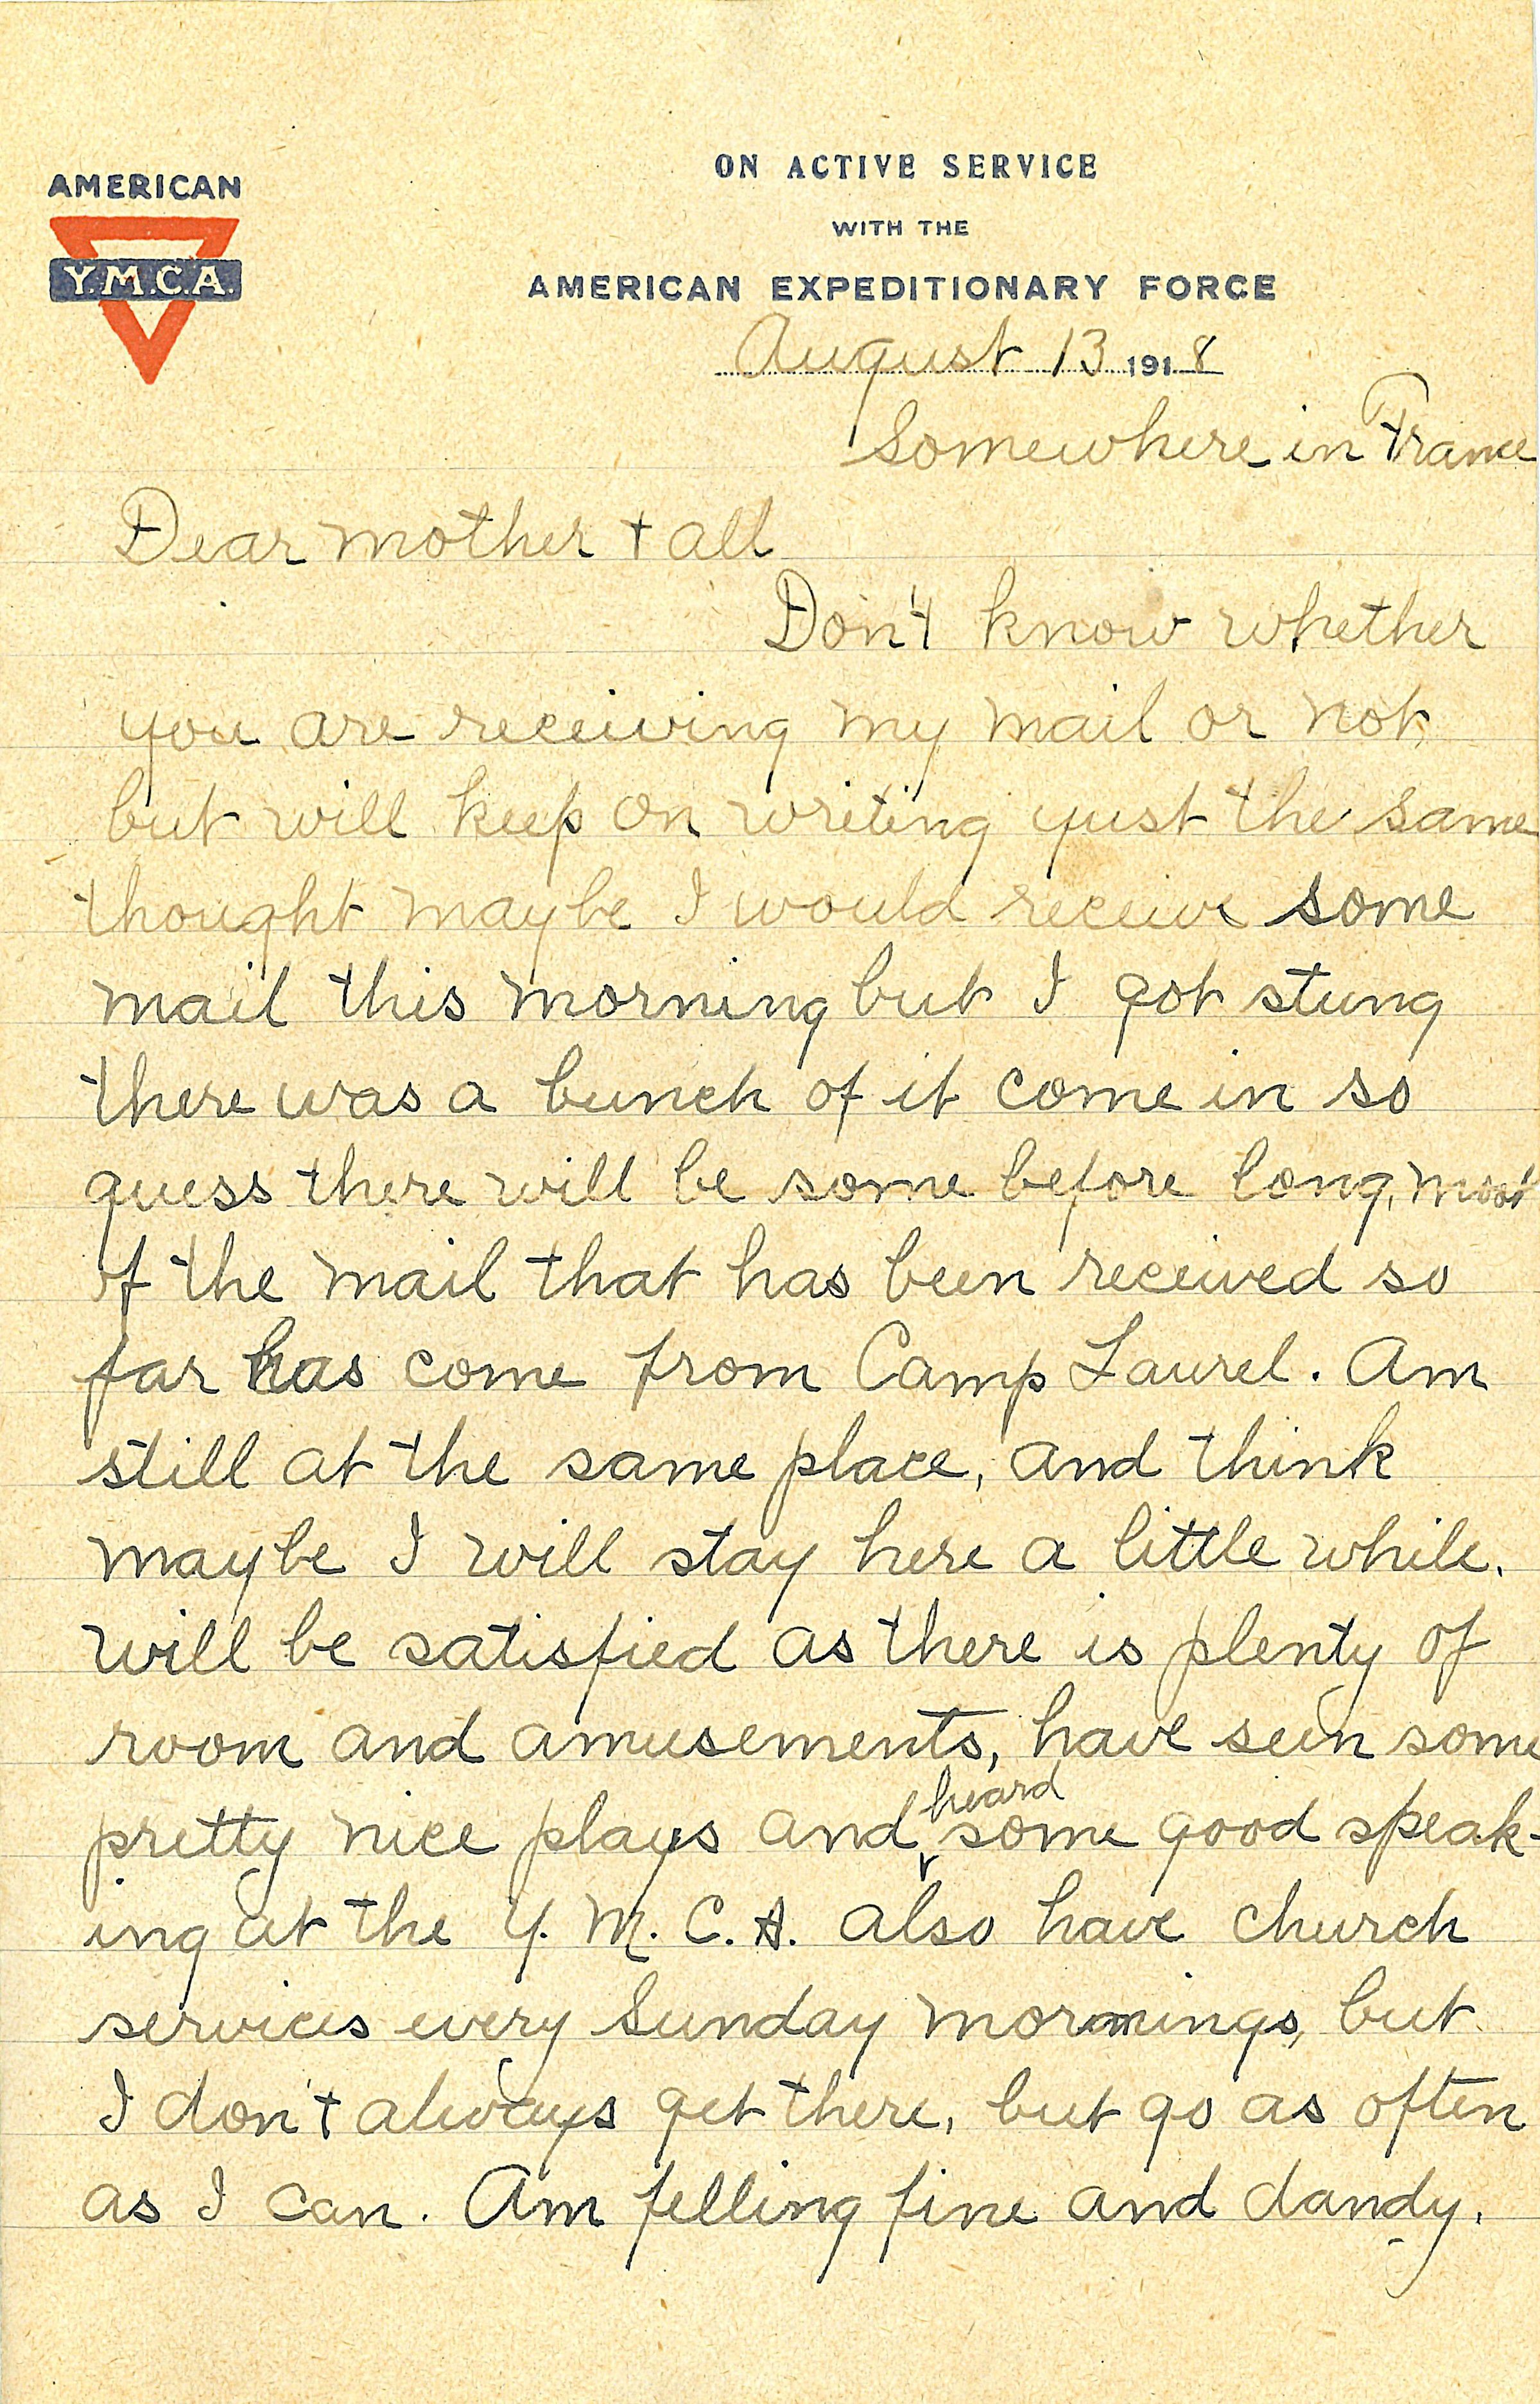 AMERICAN
Y.M.C.A.
ON ACTIVE SERVICE
WITH THE
AMERICAN EXPEDITIONARY FORCE
August 13 1918
Somewhere in France
Dear mother + all
Don't know whether
you are receiving my mail or not,
but will keep on writing yust the same
thought maybe I would receive some
mail this morning but I got stung
there was a bunch of it come in so
guess there will be some before long, most
of the mail that has been received so
far has come from Camp Laurel. Am
still at the same place, and think
maybe I will stay here a little while.
will be satisfied as there is plenty of
room and amusements, have seen some
pretty nice plays and heard some good speak-
ing at the Y. M. C. A. also have church
services every Sunday mornings, but
I don't always get there, but go as often
as I can. Am felling fine and dandy.